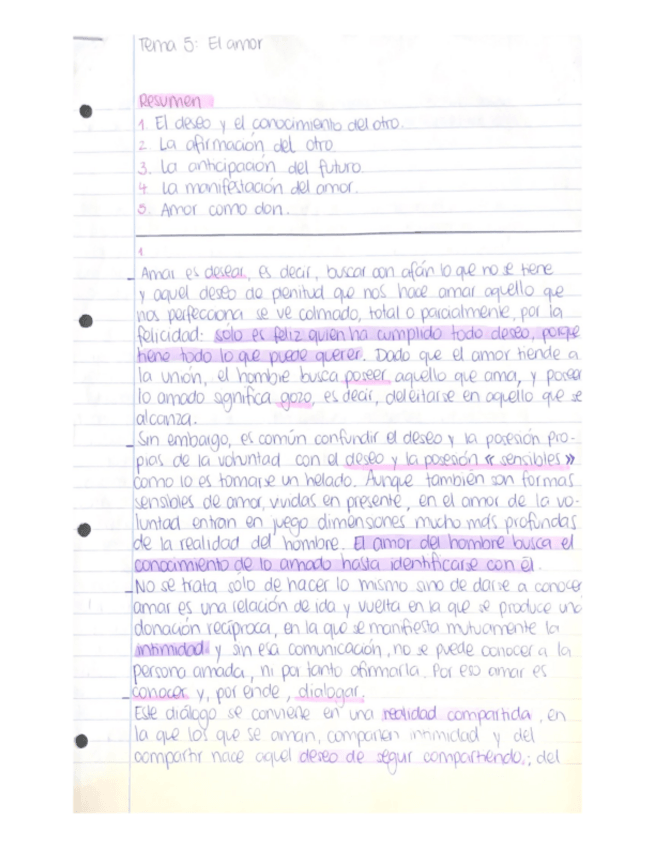 Tema 5: El amor
Resumen
1. El deseo y el conocimiento del otro.
2. La afirmación del otro
3. La anticipación del futuro.
4. La manifestación del amor.
5. Amor como don.
1
Amar es desear, es decir, buscar con afán lo que no se tiene
y aquel deseo de plenitud que nos hace amar aquello que
nos perfecciona se ve colmado, total o parcialmente, por la
felicidad: sólo es feliz quien ha cumplido todo deseo, porque
tiene todo lo que puede querer. Dado que el amor tiende a
la unión, el hombre busca poseer aquello que ama, y poseer
lo amado significa gozo, es decir, deleitarse en aquello que se
alcanza.
Sin embargo, es común confundir el deseo y la posesión pro-
pias de la voluntad con el deseo y la posesión «sensibles»
como lo es tomarse un helado. Aunque también son formas
sensibles de amor, vividas en presente, en el amor de la vo-
luntad entran en juego dimensiones mucho más profundas
de la realidad del hombre. El amor del hombre busca el
conocimiento de lo amado hasta identificarse con él.
No se trata sólo de hacer lo mismo sino de darse a conocer
amar es una relación de ida y vuelta en la que se produce una
donación recíproca, en la que se manifiesta mutuamente la
intimidad y sin esa comunicación, no se puede conocer a la
persona amada, ni por tanto afirmarla. Por eso amar es
conocer y, por ende, dialogar.
Este diálogo se convierte en una realidad compartida, en
la que los que se aman, comparten intimidad y del
compartir nace aquel deseo de seguir compartiendo,; del